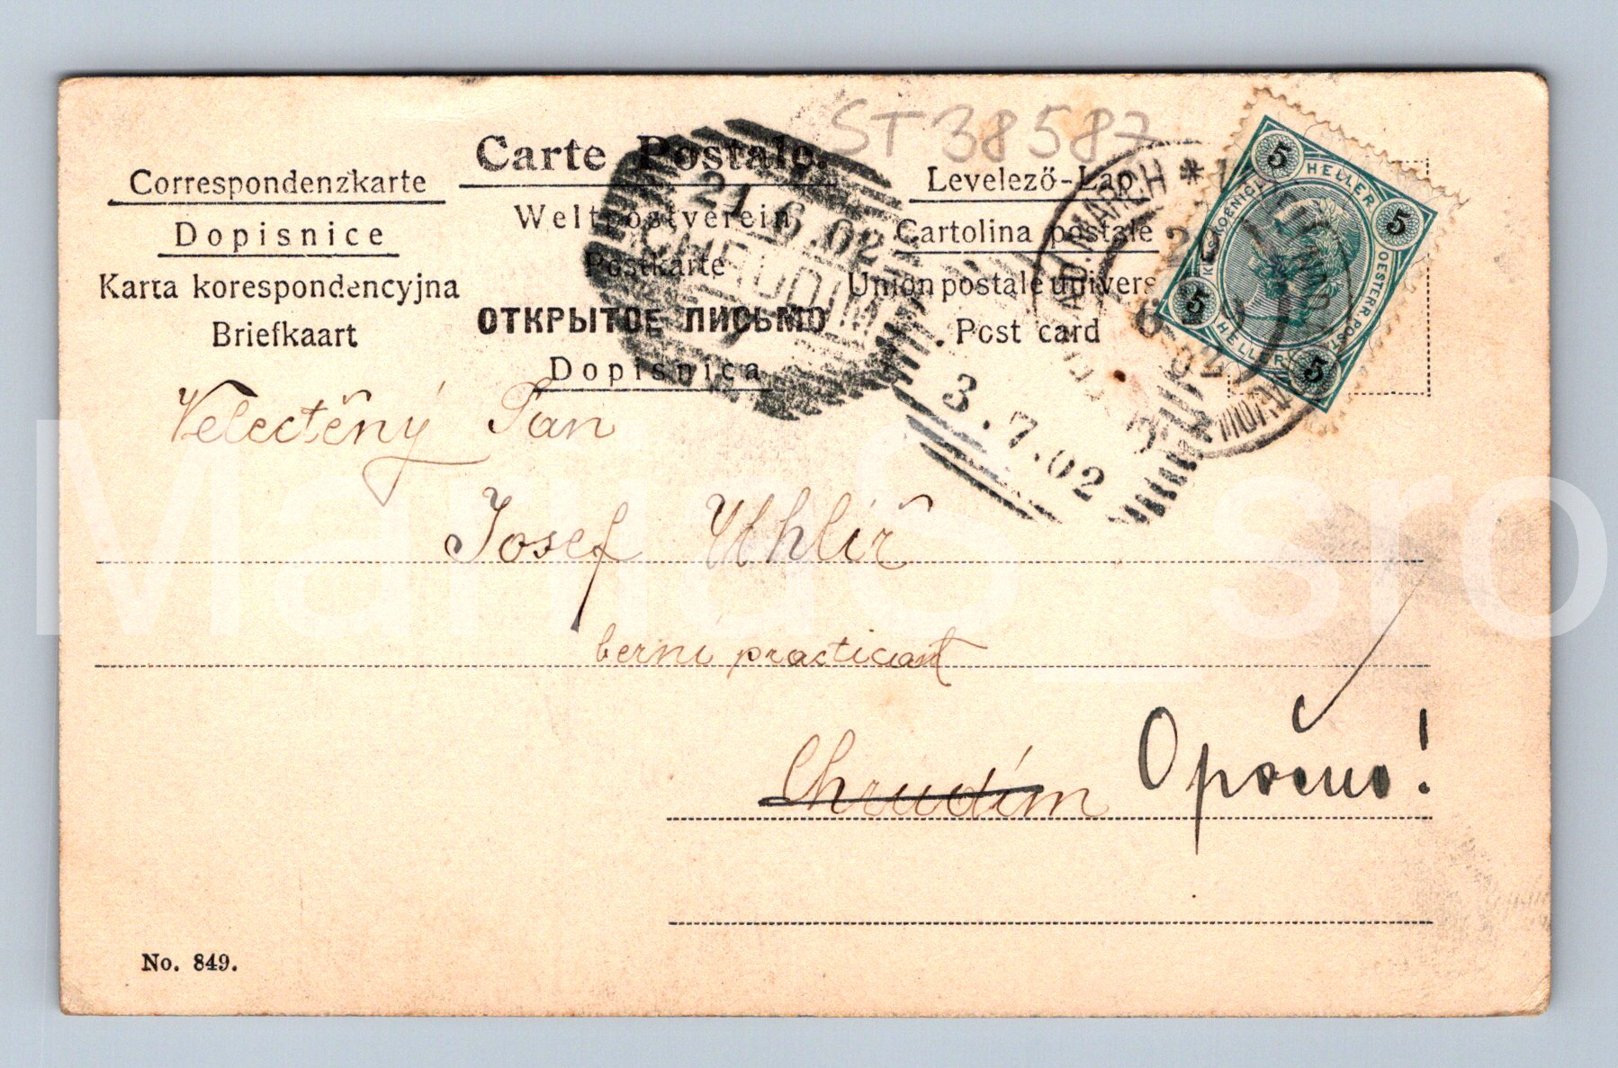 ST38587
Carte Postale.
Correspondenzkarte
Levelező-Lap
Dopisnice
Weltpostverein
Cartolina postale
Karta korespondencyjna
Postkarte
Union postale univers
Briefkaart
ОТКРЫТОЕ ПИСЬМО
Post card
Dopisnica
21.6.02
CHRUDIM
AD. MARCH *
3.7.02
5 HELLER 5
5 HELLER 5
KAIS. KOENIGL.
OESTERR. POST
Velectěný Pan
Josef Uhhlíř
berní practicant
Chrudím Opočno!
No. 849.